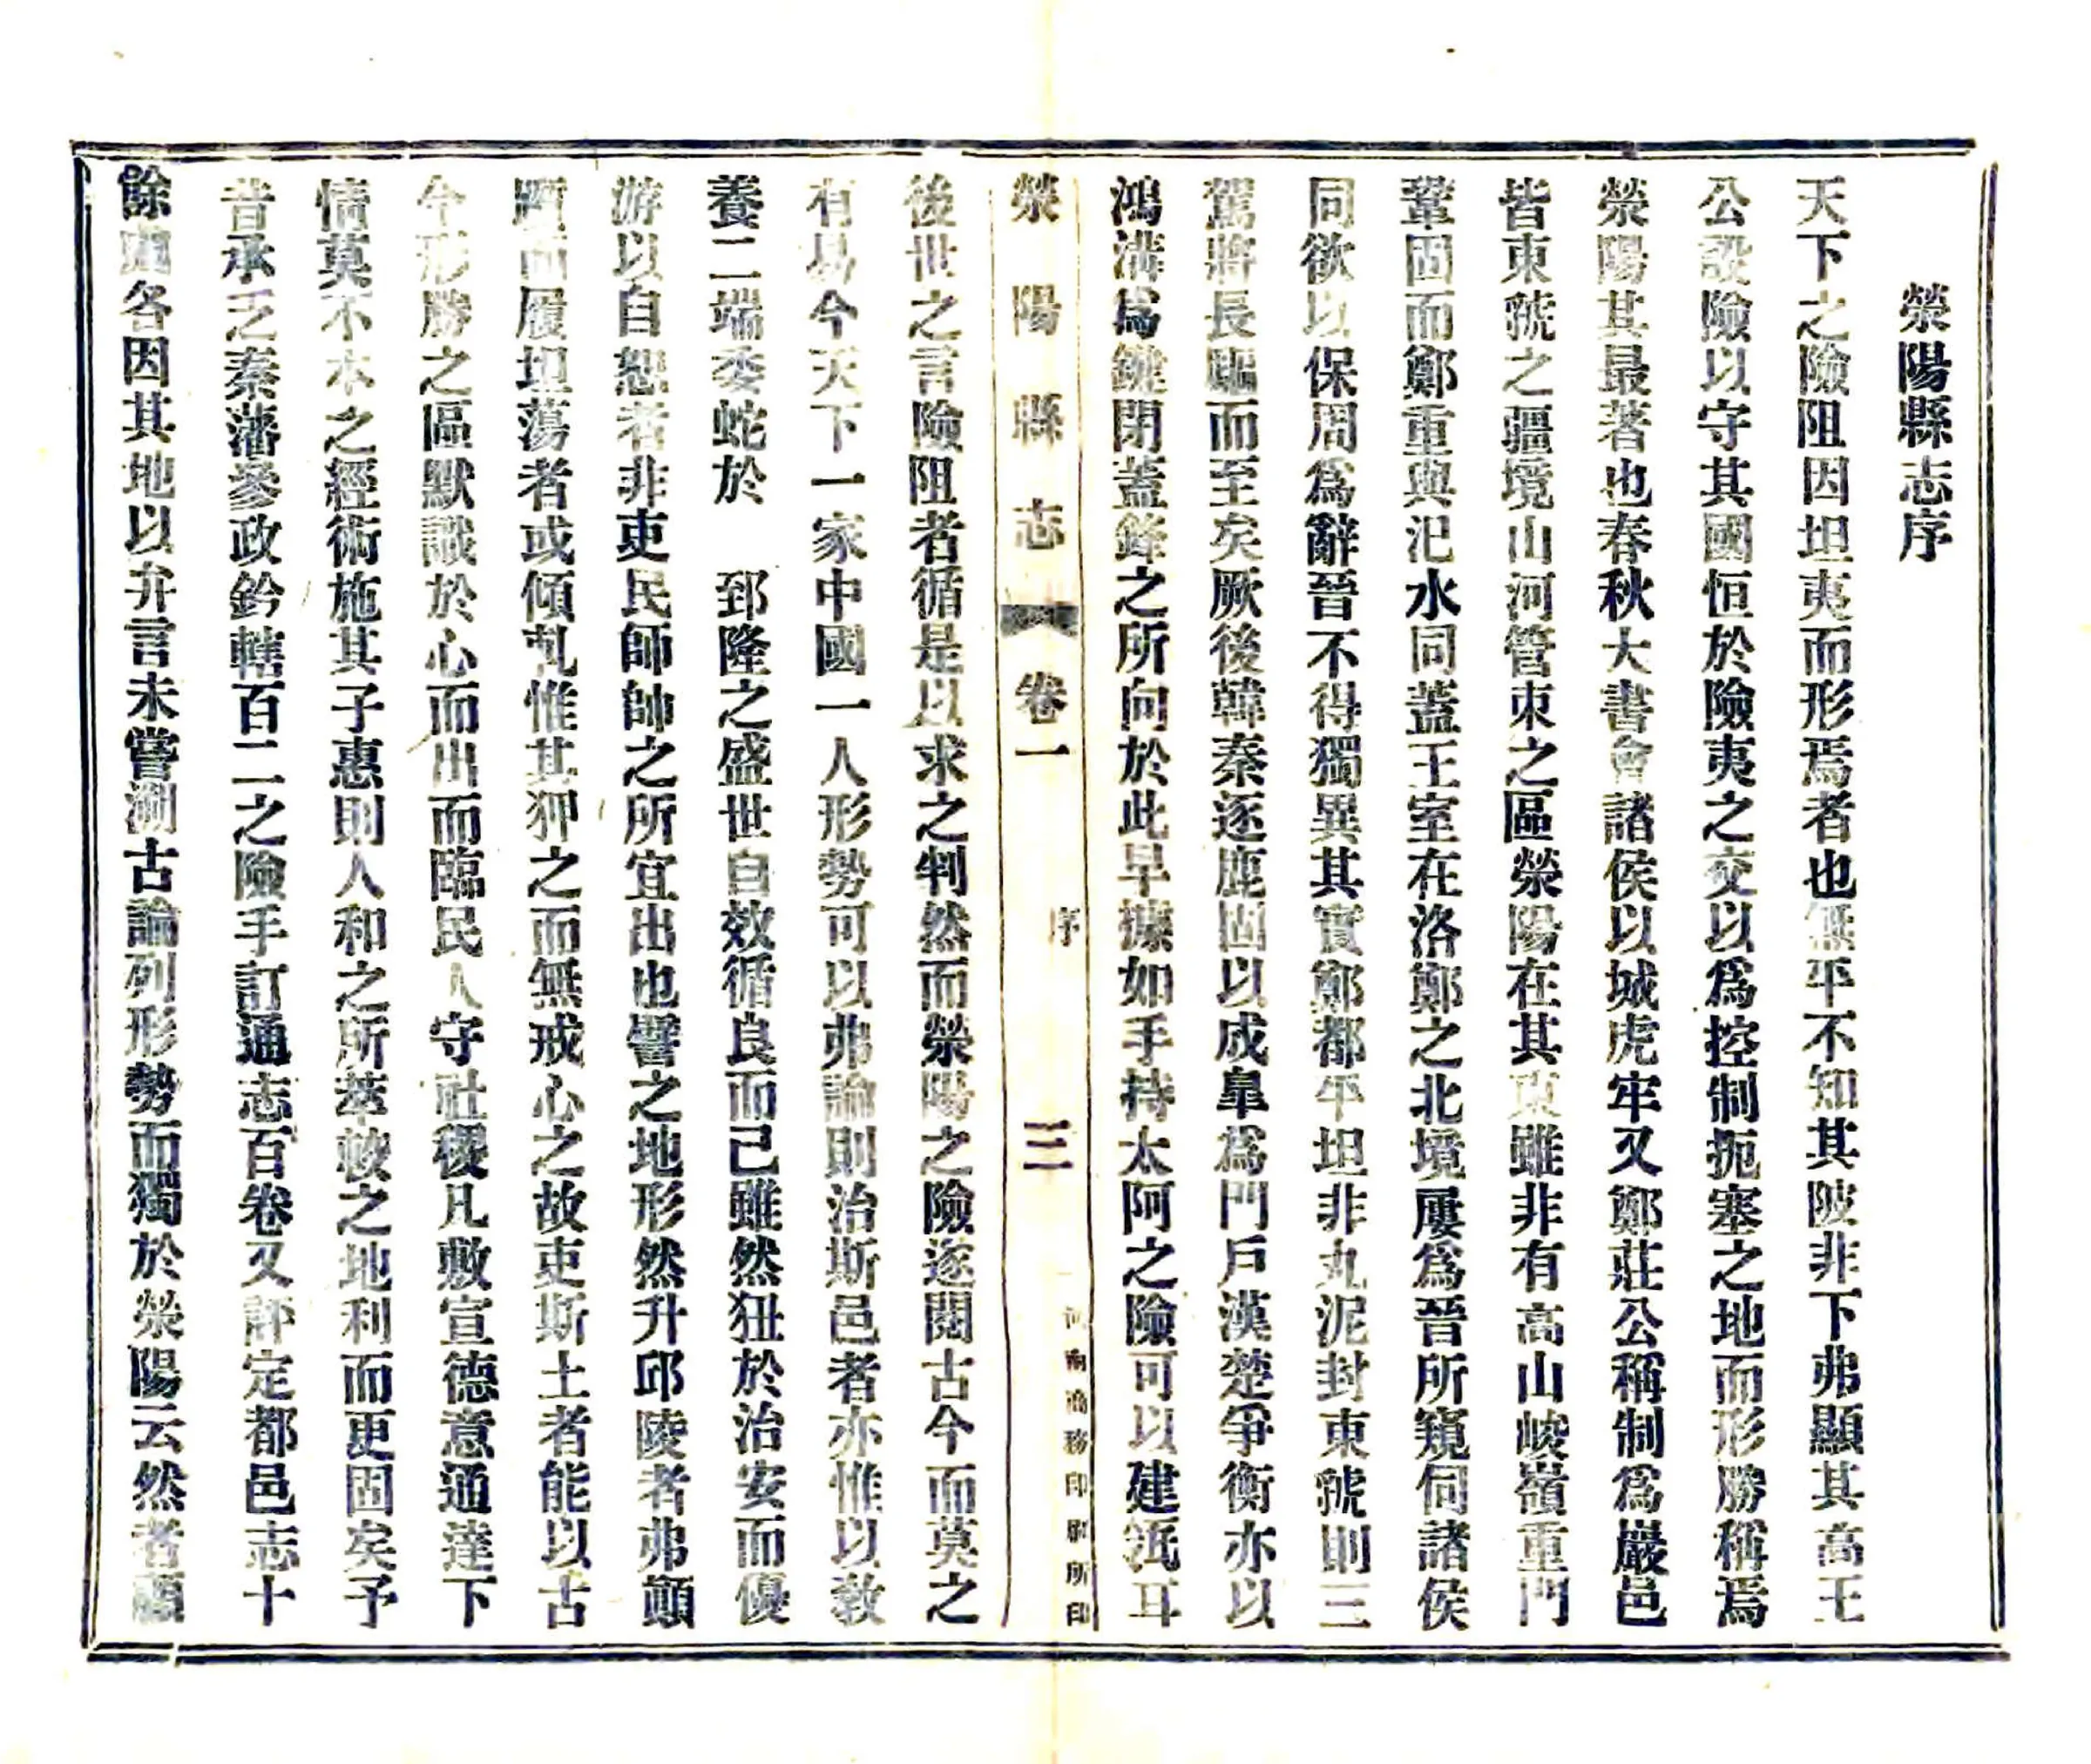 滎陽縣志序
天下之險阻因坦夷而形焉者也無平不知其陂非下弗顯其高王
公設險以守其國恒於險夷之交以爲控制扼塞之地而形勝稱焉
滎陽其最著也春秋大書會諸侯以城虎牢又鄭莊公稱制爲巖邑
皆東虢之疆境山河管束之區滎陽在其東雖非有高山峻嶺重門
鞏固而鄭重與汜水同蓋王室在洛鄭之北境屢爲晉所窺伺諸侯
同欲以保周爲辭晉不得獨異其實鄭都平坦非丸泥封東虢則三
駕將長驅而至矣厥後韓秦逐鹿固以成臯爲門戶漢楚爭衡亦以
鴻溝爲鍵閉蓋鋒之所向於此早據如手持太阿之險可以建瓴耳
滎陽縣志 卷一 序 三 河南商務印刷所印
後世之言險阻者循是以求之判然而滎陽之險遂閱古今而莫之
有易今天下一家中國一人形勢可以弗論則治斯邑者亦惟以敎
養二端委蛇於 郅隆之盛世自效循良而已雖然狃於治安而優
游以自恕者非吏民師帥之所宜出也譬之地形然升邱陵者弗顚
躓而履坦蕩者或傾虬惟其狎之而無戒心之故吏斯土者能以古
今形勝之區默識於心而出而臨民人守社稷凡敷宣德意通達下
情莫不本之經術施其子惠則人和之所萃較之地利而更固矣予
昔承乏秦藩參政鈐轄百二之險手訂通志百卷又評定都邑志十
餘 各因其地以弁言未嘗溯古論列形勢而獨於滎陽云然者顧